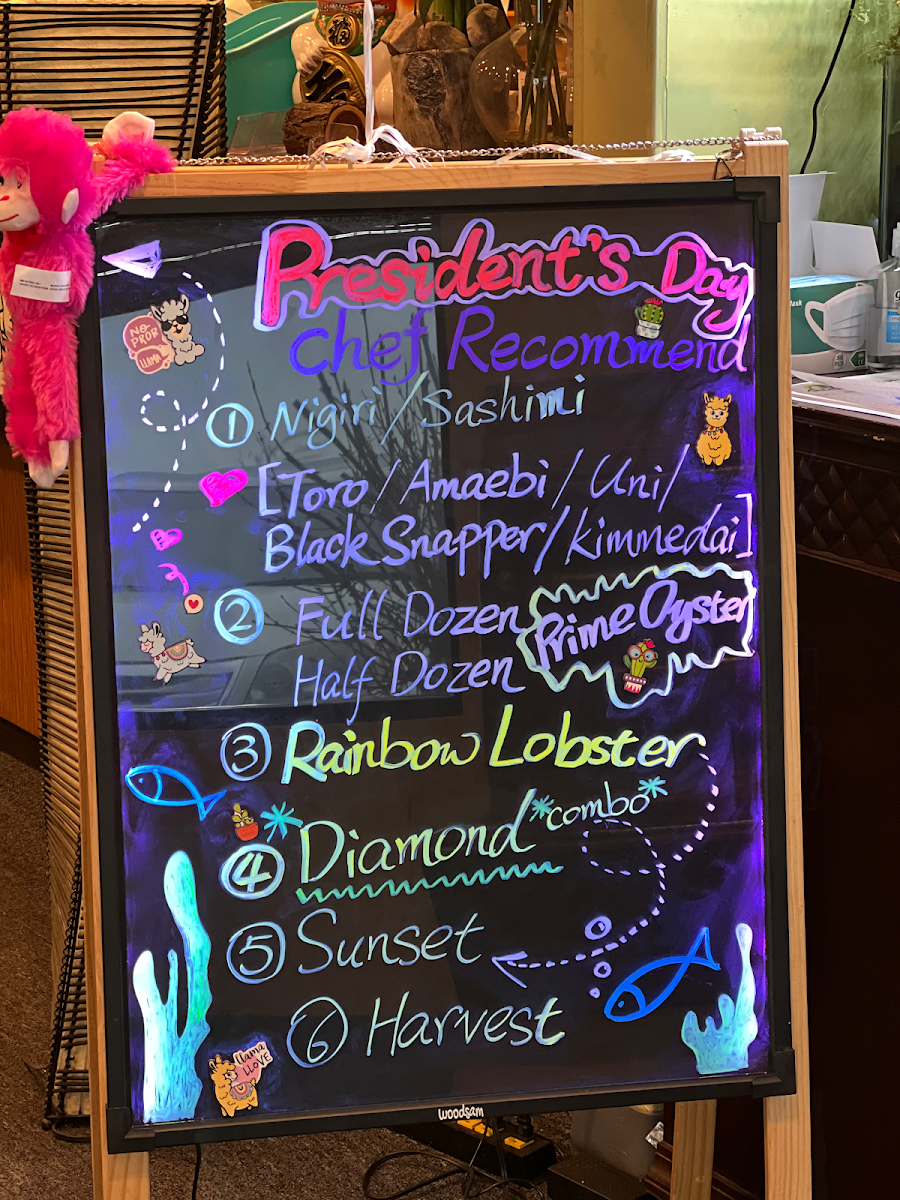 President's Day
Chef Recommend
NO
PROB
LLAMA
① Nigiri / Sashimi
[Toro / Amaebi / Uni /
Black Snapper / Kimmedai]
② Full Dozen
Half Dozen
Prime Oyster
③ Rainbow Lobster
④ Diamond *combo*
⑤ Sunset
⑥ Harvest
llama
LLOVE
woodsam
Mask